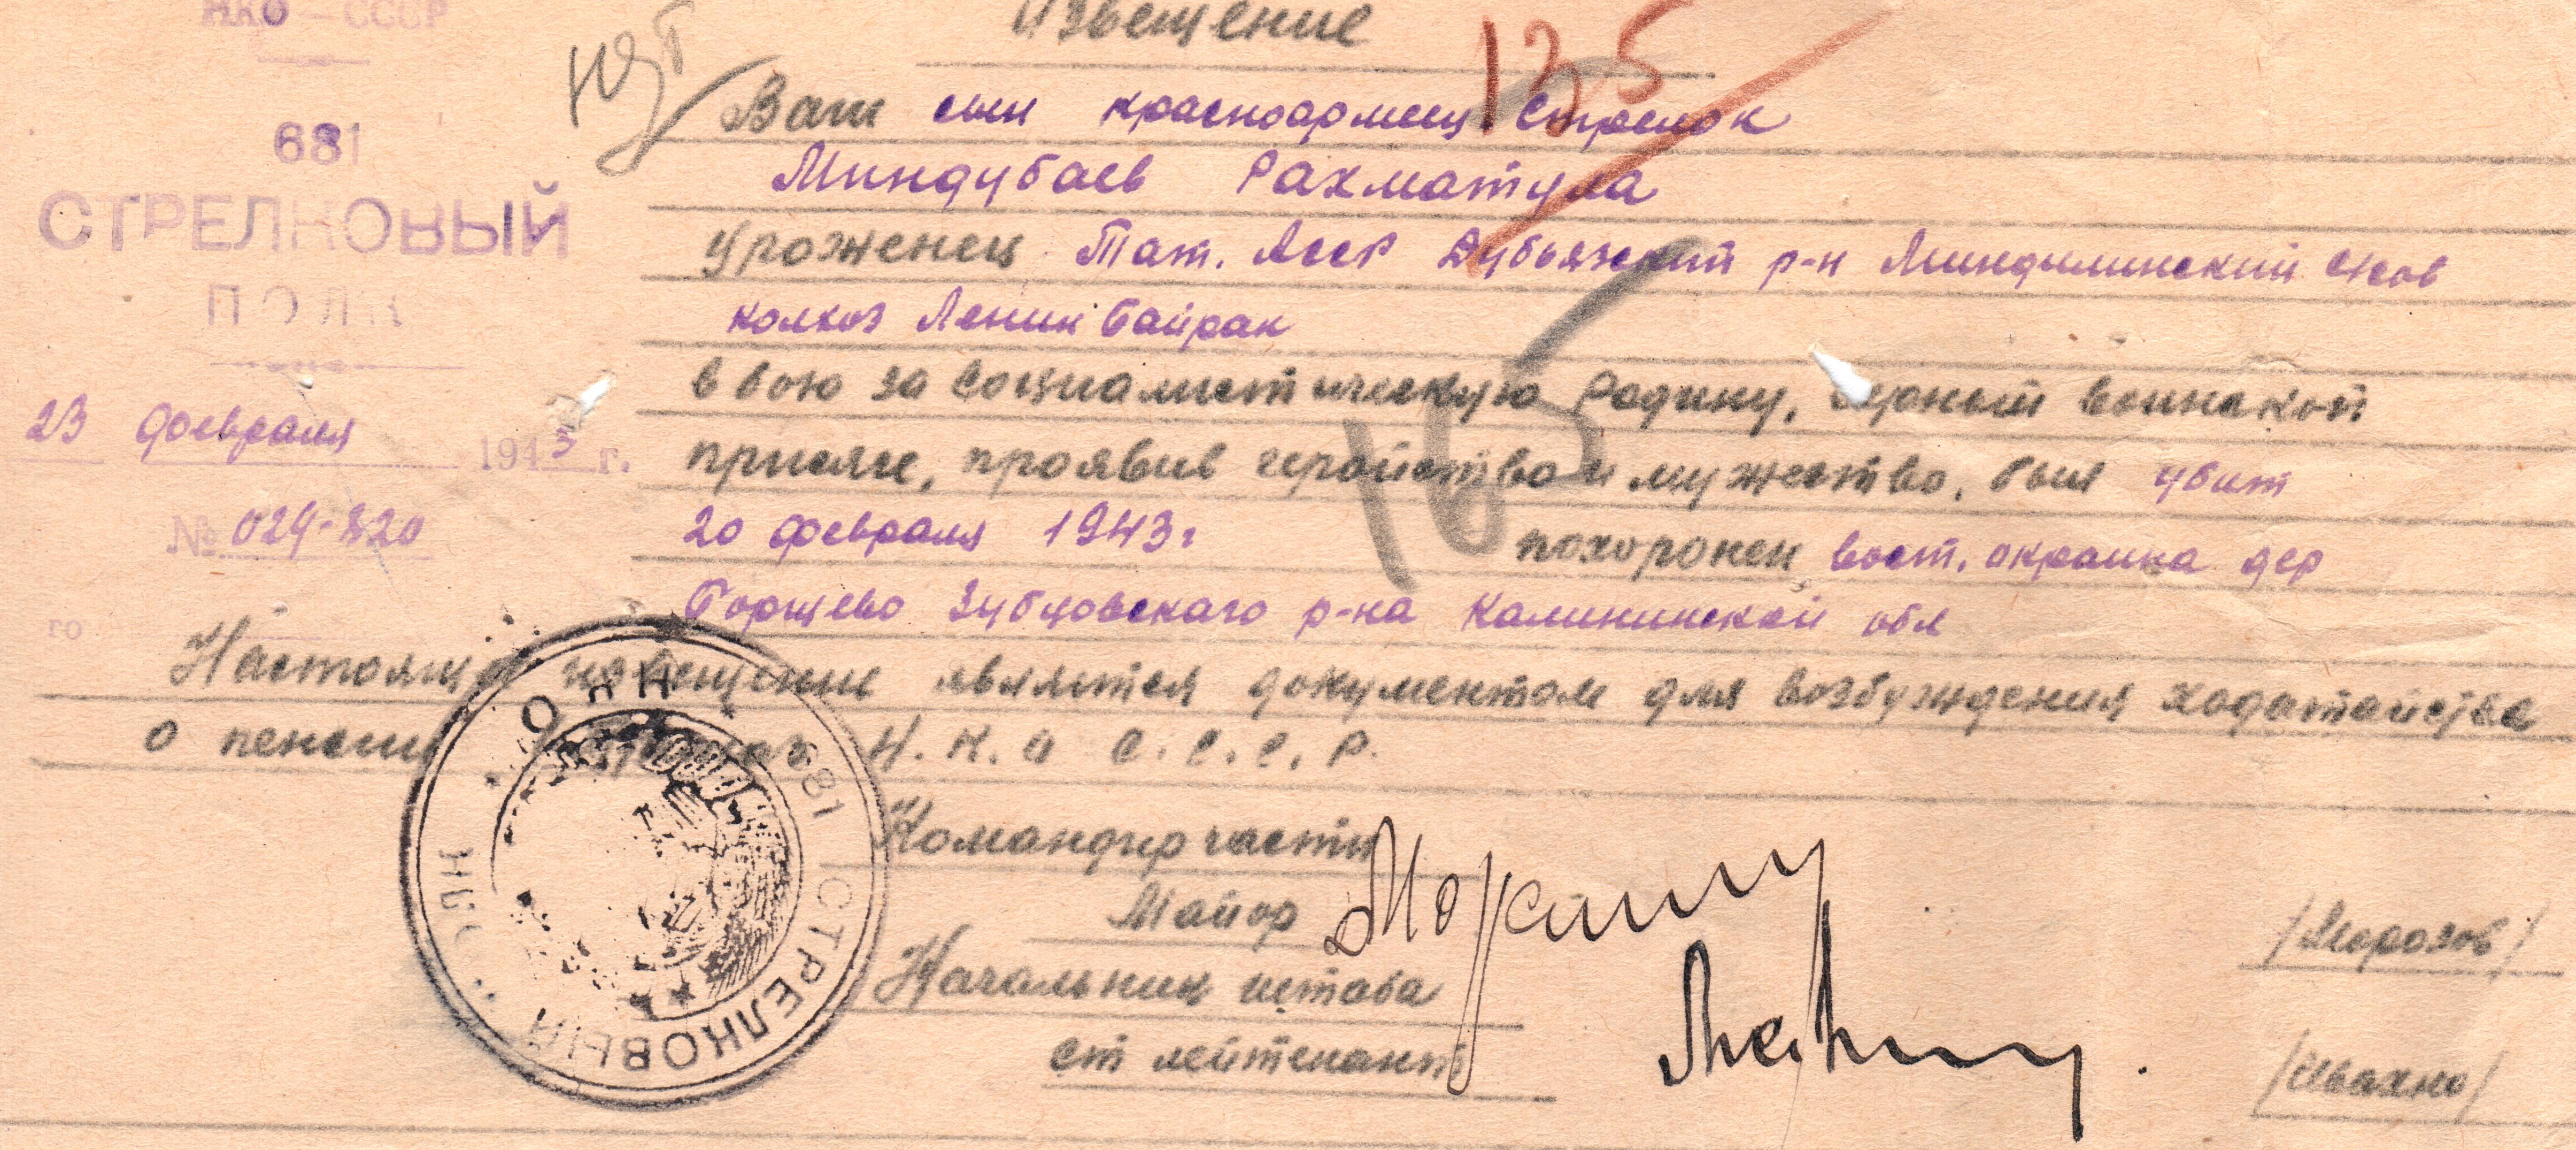 НКО – СССР
681
СТРЕЛКОВЫЙ
ПОЛК
23 февраля 1943 г.
№ 024-820
го
Извещение
135
Ваш сын красноармеец стрелок
Миндубаев Рахматула
уроженец Тат. Асср Дубьязский р-н
колхоз Ленин Байрак
в бою за социалистическую Родину, верный воинской
присяге, проявив геройство и мужество, был убит
20 февраля 1943 г похоронен вост. окраина дер
Горщево Зубцовского р-на Калининской обл
165
Настоящее извещение является документом для возбуждения ходатайства
о пенсии Н.К.О С.С.С.Р.
Командир части
Майор /Морозов/
Начальник штаба
ст лейтенант /Ивахно/
НКО
681 СТРЕЛКОВЫЙ